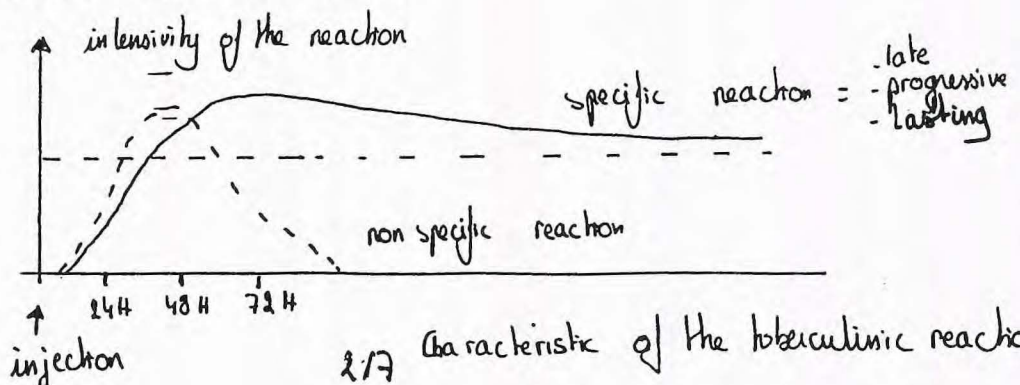 intensivity of the reaction
specific reaction =
- late
- progressive
- lasting
non specific reaction
24H 48H 72H
injection
2/7 Characteristic of the tuberculinic reactio